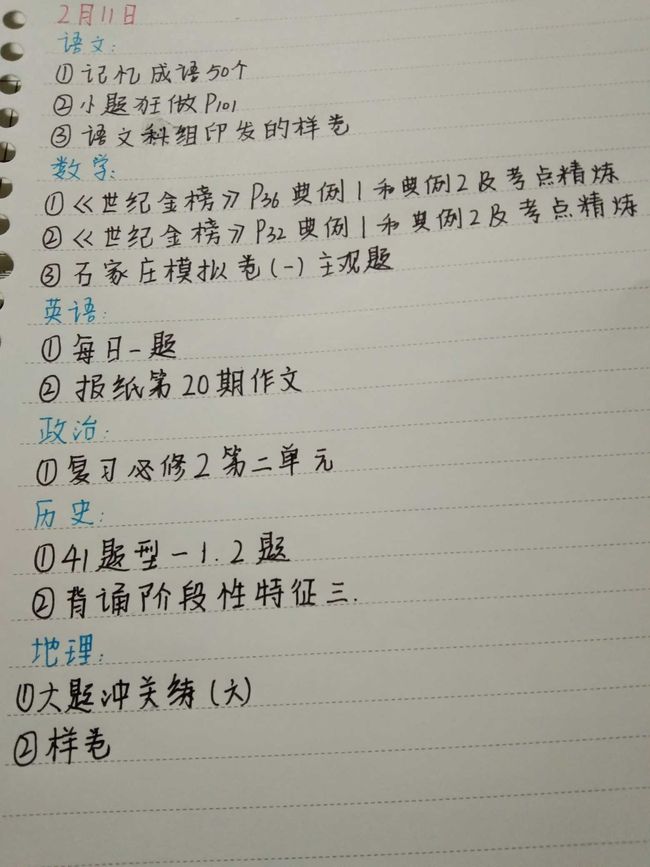 2月11日
语文:
①记忆成语50个
②小题狂做P101
③语文科组印发的样卷
数学:
①《世纪金榜》P36典例1和典例2及考点精炼
②《世纪金榜》P32典例1和典例2及考点精炼
③石家庄模拟卷(一)主观题
英语:
①每日一题
②报纸第20期作文
政治:
①复习必修2第二单元
历史:
①41题型一1.2题
②背诵阶段性特征三.
地理:
①大题冲关练(六)
②样卷